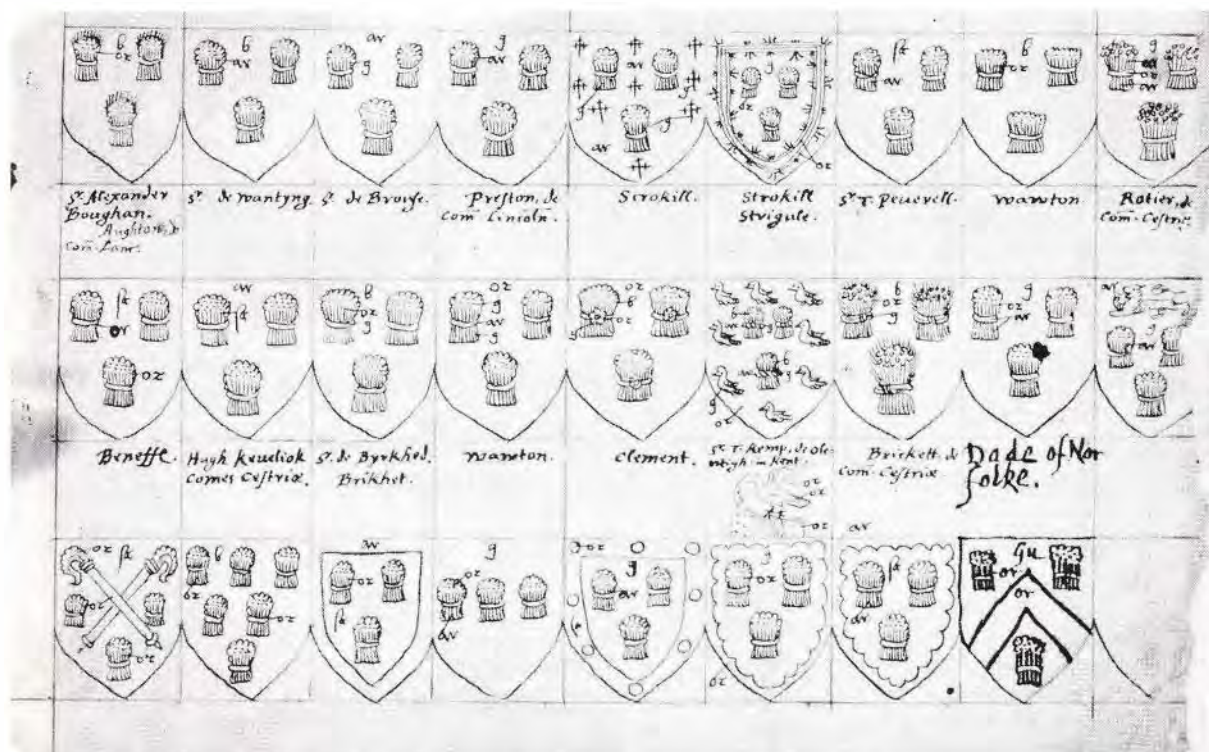 b
or
b
ar
ar
g
g
ar
ar
g
g
ar
g
or
or
ſa
ar
b
or
g
or
ar
Sr. Alexander
Boughan.
Aughton, de
Com. Lanc.
Sr. de Wantyng.
Sr. de Broyse.
Preston, de
Com. Lincoln.
Strokill.
Strokill
Strigule.
Sr. T. Peuerell.
Wawton.
Rotier, de
Com. Cestriæ.
ſa
or
or
ar
ſa
b
or
g
or
g
ar
g
or
b
or
g
b
ar
g
b
ar
g
g
or
b
or
g
g
or
ar
ar
g
ar
Beneffe.
Hugh Keueliok
Comes Cestriæ.
Sr. de Byrkhed.
Brikhet.
Wawton.
Clement.
Sr. T. Kemp, de Ole-
in Kent.
Brickett de
Com. Cestriæ
Dade of Nor
folke.
or
or
or
ar
or
ſa
or
or
b
or
or
ar
or
ſa
g
or
ar
or
g
ar
g
or
or
ſa
ar
Gu
or
or